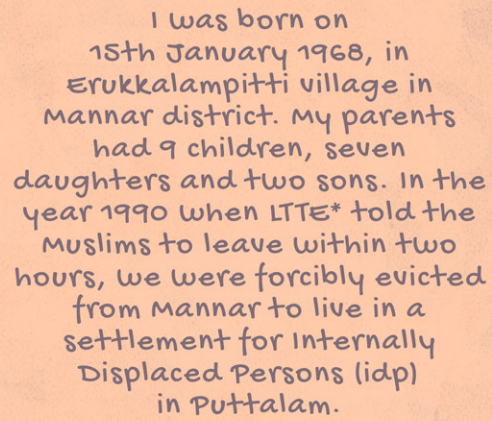 I was born on
15th January 1968, in
Erukkalampitti village in
Mannar district. My parents
had 9 children, seven
daughters and two sons. In the
year 1990 when LTTE* told the
Muslims to leave within two
hours, we were forcibly evicted
from Mannar to live in a
settlement for Internally
Displaced Persons (idp)
in Puttalam.